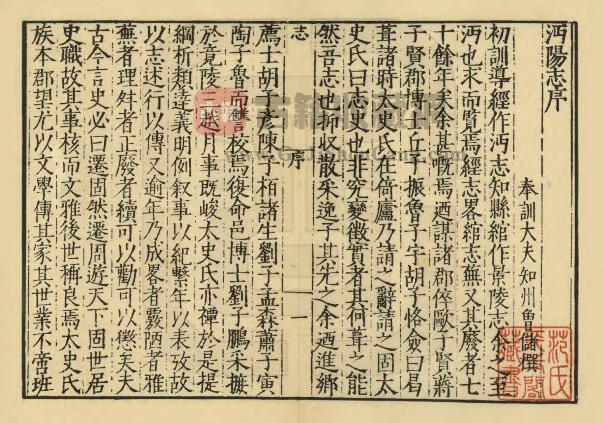 沔陽志序
奉訓大夫知州曾儲撰
初訓導經作沔志知縣綰作景陵志余之至
沔也求而覽焉經志畧綰志無又其廢者七
十餘年矣余甚慨焉廼謀諸郡倅歐子賢蔣
子賢郡博士丘子振魯子宇胡子恪僉曰曷
葺諸時太史氏在倚廬乃請之辭請之固太
史氏曰志史也非究變徵實者其何葺之能
然吾志也抑收散采逸子其先之余廼進鄉
志 序 一
薦士胡子彥陳子栢諸生劉子孟森蕭子寅
陶子魯而讐校焉復命邑博士劉子鵬采摭
於竟陵三越月事既峻太史氏亦禫於是提
綱析類達義明例叙事以紀繫年以表攷故
以志述行以傳又逾年乃成畧者覈陋者雅
蕪者理舛者正廢者續可以勸可以懲矣夫
古今言史必曰遷固然遷周遊天下固世居
史職故其事核而文雅後世稱良焉太史氏
族本郡望尤以文學傳其家其世業不啻班
范氏
藏書